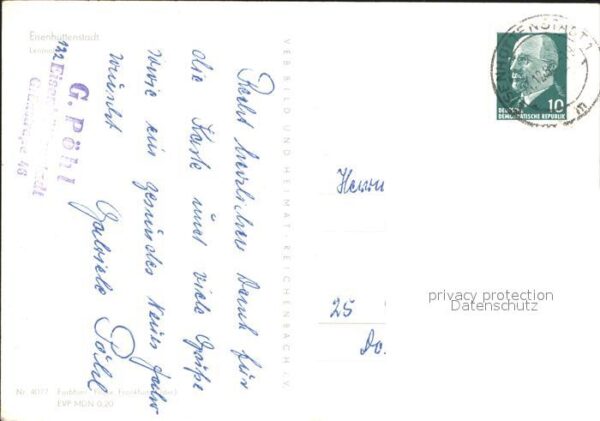 Eisenhüttenstadt
Recht herzlichen Dank für
die Karte und viele Grüße
sowie ein gesundes Neues Jahr
wünscht
Gabriele Pöhl
G. Pöhl
122 Eisenhüttenstadt
VEB BILD UND HEIMAT · REICHENBACH i. V.
Nr. 4077
EVP MDN 0,20
10
DEUTSCHE
DEMOKRATISCHE REPUBLIK
EISENHÜTTENSTADT 1
Herrn
25
Do
privacy protection
Datenschutz